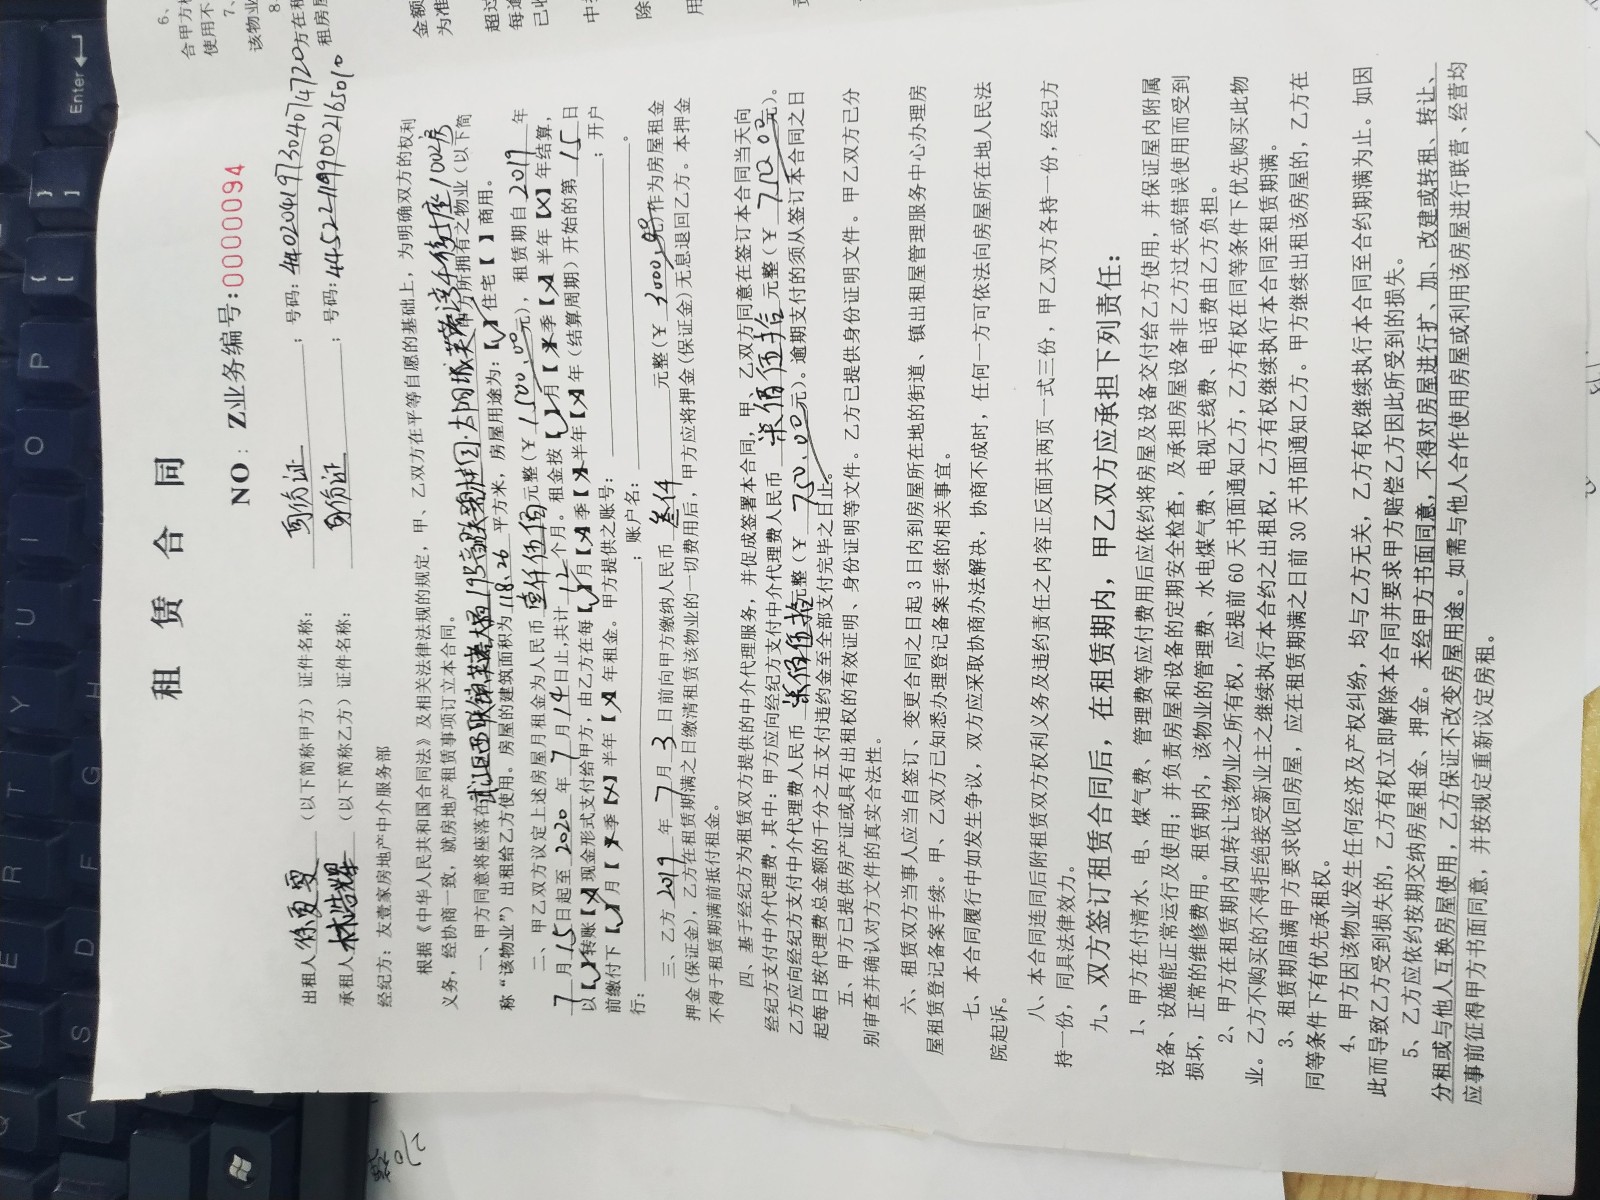 租 赁 合 同
NO: Z业务编号:0000094
出租人 徐夏雯 (以下简称甲方) 证件名称: 身份证 ; 号码: 440204197304074720
承租人 林浩辉 (以下简称乙方) 证件名称: 身份证 ; 号码: 445221199002165010
经纪方:友壹家房地产中介服务部
根据《中华人民共和国合同法》及相关法律法规的规定,甲、乙双方在平等自愿的基础上,为明确双方的权利
义务,经协商一致,就房地产租赁事项订立本合同。
一、甲方同意将座落在 1002房 甲方所拥有之物业(以下简
称“该物业”)出租给乙方使用。房屋的建筑面积为 118.26 平方米,房屋用途为:【✓】住宅【 】商用。
二、甲乙双方议定上述房屋月租金为人民币 壹仟伍佰 元整(¥ 1500.00元),租赁期自 2019 年
7 月 15 日起至 2020 年 7 月 14 日止,共计 12 个月。租金按【✓】月【X】季【X】半年【X】年结算,
以【✓】转账【X】现金形式支付给甲方,由乙方在每【✓】月【X】季【X】半年【X】年(结算周期)开始的第 15 日
前缴付下【✓】月【X】季【X】半年【X】年租金。甲方提供之账号: ; 开户
行: ; 账户名: 。
三、乙方 2019 年 7 月 3 日前向甲方缴纳人民币 叁仟 元整(¥ 3000.00元)作为房屋租金
押金(保证金),乙方在租赁期满之日缴清租赁该物业的一切费用后,甲方应将押金(保证金)无息退回乙方。本押金
不得于租赁期满前抵付租金。
四、基于经纪方为租赁双方提供的中介代理服务,并促成签署本合同,甲、乙双方同意在签订本合同当天向
经纪方支付中介代理费,其中:甲方应向经纪方支付中介代理费人民币 柒佰伍拾 元整(¥ 元)。
乙方应向经纪方支付中介代理费人民币 柒佰伍拾 元整(¥ 750.00元)。逾期支付的须从签订本合同之日
起每日按代理费总金额的千分之五支付违约金至全部支付完毕之日止。
五、甲方已提供房产证或具有出租权的有效证明、身份证明等文件。乙方已提供身份证明文件。甲乙双方已分
别审查并确认对方文件的真实合法性。
六、租赁双方当事人应当自签订、变更合同之日起 3 日内到房屋所在地的街道、镇出租屋管理服务中心办理房
屋租赁登记备案手续。甲、乙双方已知悉办理登记备案手续的相关事宜。
七、本合同履行中如发生争议,双方应采取协商办法解决,协商不成时,任何一方可依法向房屋所在地人民法
院起诉。
八、本合同连同后附租赁双方权利义务及违约责任之内容正反面共两页一式三份,甲乙双方各持一份,经纪方
持一份,同具法律效力。
九、双方签订租赁合同后,在租赁期内,甲乙双方应承担下列责任:
1、甲方在付清水、电、煤气费、管理费等应付费用后应依约将房屋及设备交付给乙方使用,并保证屋内附属
设备、设施能正常运行及使用;并负责房屋和设备的定期安全检查,及承担房屋设备非乙方过失或错误使用而受到
损坏,正常的维修费用。租赁期内,该物业的管理费、水电煤气费、电视天线费、电话费由乙方负担。
2、甲方在租赁期内如转让该物业之所有权,应提前 60 天书面通知乙方,乙方有权在同等条件下优先购买此物
业。乙方不购买的不得拒绝接受新业主之继续执行本合约之出租权,乙方有权继续执行本合同至租赁期满。
3、租赁期届满甲方要求收回房屋,应在租赁期满之日前 30 天书面通知乙方。甲方继续出租该房屋的,乙方在
同等条件下有优先承租权。
4、甲方因该物业发生任何经济及产权纠纷,均与乙方无关,乙方有权继续执行本合同至合约期满为止。如因
此而导致乙方受到损失的,乙方有权立即解除本合同并要求甲方赔偿乙方因此所受到的损失。
5、乙方应依约按期交纳房屋租金、押金。未经甲方书面同意,不得对房屋进行扩、加、改建或转租、转让、
分租或与他人互换房屋使用,乙方保证不改变房屋用途。如需与他人合作使用房屋或利用该房屋进行联营、经营均
应事前征得甲方书面同意,并按规定重新议定房租。
6、
合甲方
使用不
7、
该物业
8、
方在租
租房屋
金额
为准
超过
每逾
已收
中
除
用
Enter
}
]
{
[
P
O
I
U
Y
T
R
E
W
Q
H
G
F
D
S
A